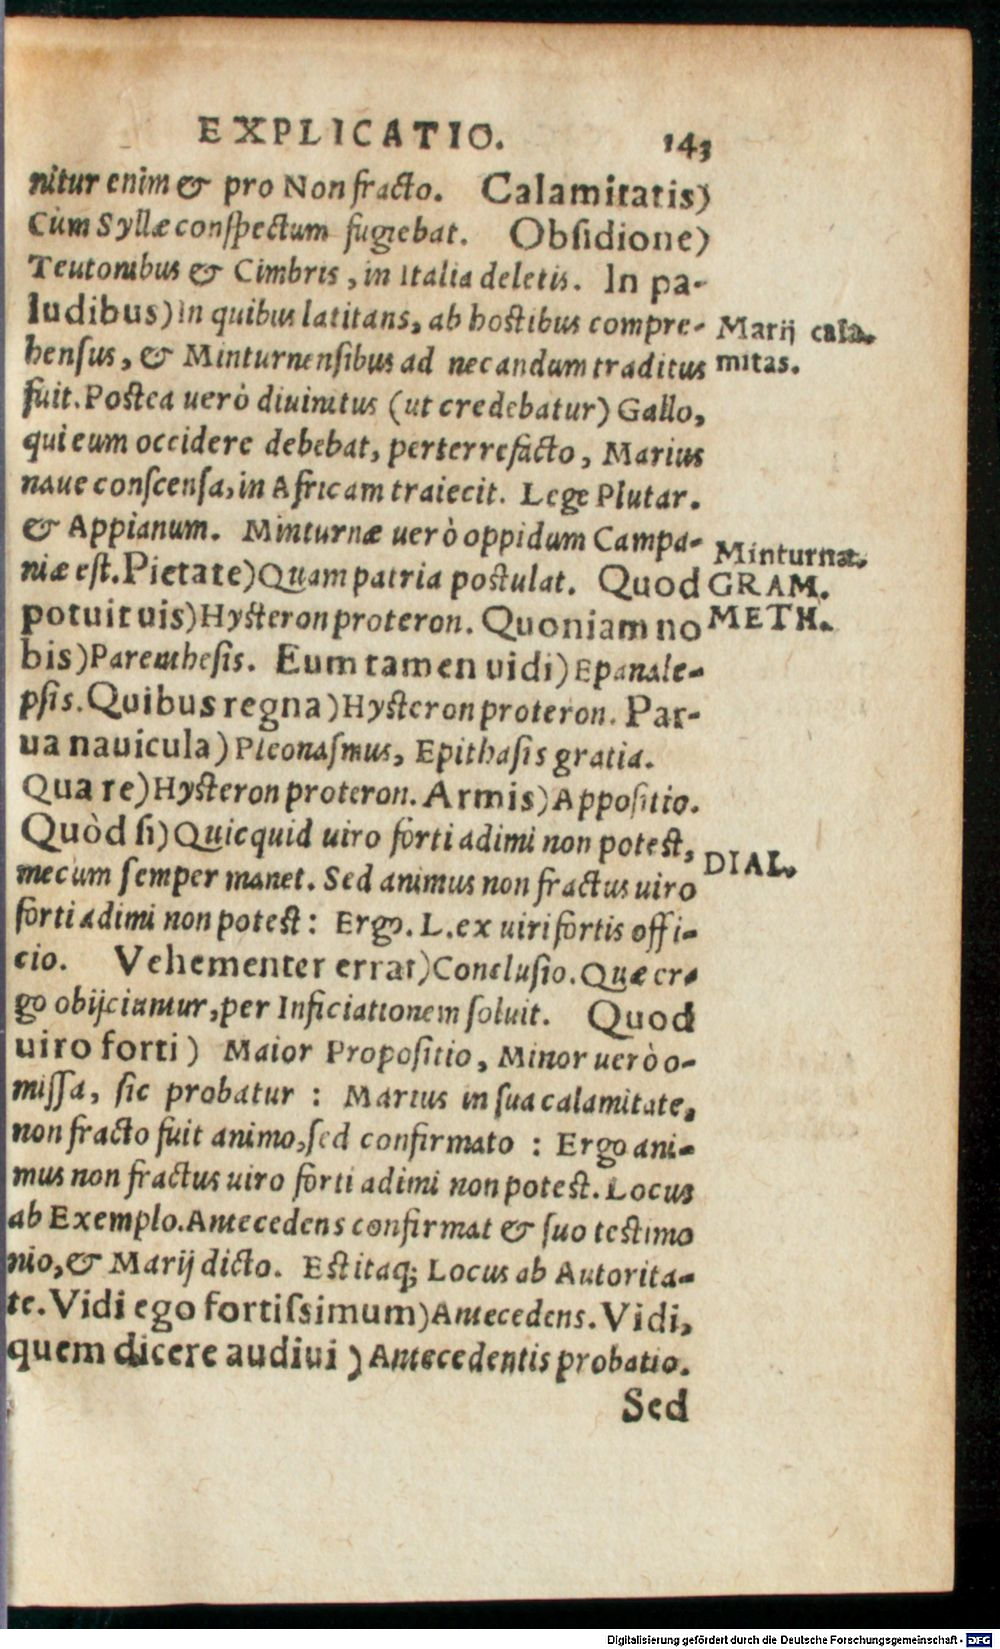 EXPLICATIO. 143
nitur enim & pro Non fracto. Calamitatis)
Cùm Syllæ conspectum fugiebat. Obsidione)
Teutonibus & Cimbris, in Italia deletis. In pa-
ludibus) In quibus latitans, ab hostibus compre-
Marij cala-
hensus, & Minturnensibus ad necandum traditus
mitas.
fuit. Postea uerò diuinitus (ut credebatur) Gallo,
qui eum occidere debebat, perterrefacto, Marius
naue conscensa, in Africam traiecit. Lege Plutar.
& Appianum. Minturnæ uerò oppidum Campa-
Minturnæ.
niæ est. Pietate) Quam patria postulat. Quod
GRAM.
potuit uis) Hysteron proteron. Quoniam no
METH.
bis) Parenthesis. Eum tamen uidi) Epanale-
psis. Quibus regna) Hysteron proteron. Par-
ua nauicula) Pleonasmus, Epithasis gratia.
Qua re) Hysteron proteron. Armis) Appositio.
Quòd si) Quicquid uiro forti adimi non potest,
DIAL.
mecum semper manet. Sed animus non fractus uiro
forti adimi non potest: Ergo. L. ex uiri fortis offi-
cio. Vehementer errat) Conclusio. Quæ er-
go obijciuntur, per Inficiationem soluit. Quod
uiro forti) Maior Propositio, Minor uerò o-
missa, sic probatur: Marius in sua calamitate,
non fracto fuit animo, sed confirmato: Ergo ani-
mus non fractus uiro forti adimi non potest. Locus
ab Exemplo. Antecedens confirmat & suo testimo
nio, & Marij dicto. Est itaq; Locus ab Autorita-
te. Vidi ego fortissimum) Antecedens. Vidi,
quem dicere audiui) Antecedentis probatio.
Sed
Digitalisierung gefördert durch die Deutsche Forschungsgemeinschaft - DFG